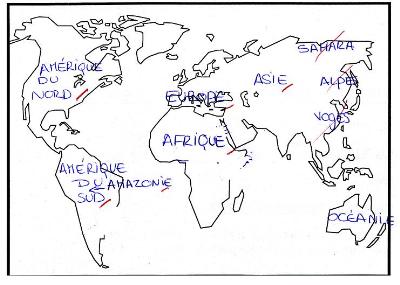 SAHARA
AMÉRIQUE
DU
NORD
ASIE
ALPES
EUROPE
VOGES
AFRIQUE
AMÉRIQUE
DU AMAZONIE
SUD
OCÉANIE